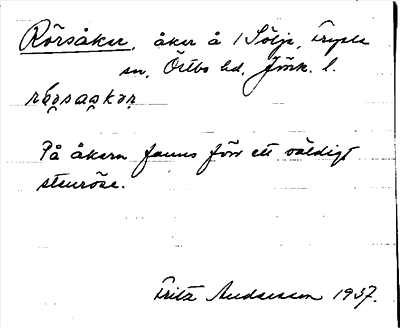 Rörsåker, åker å 1 Sölje, Tryserums
sn, Östbo hd, Jönk. l.
rø̨rsaakǝr
På åkern fanns förr ett väldigt
stenröse.
Fritz Andersson 1937.